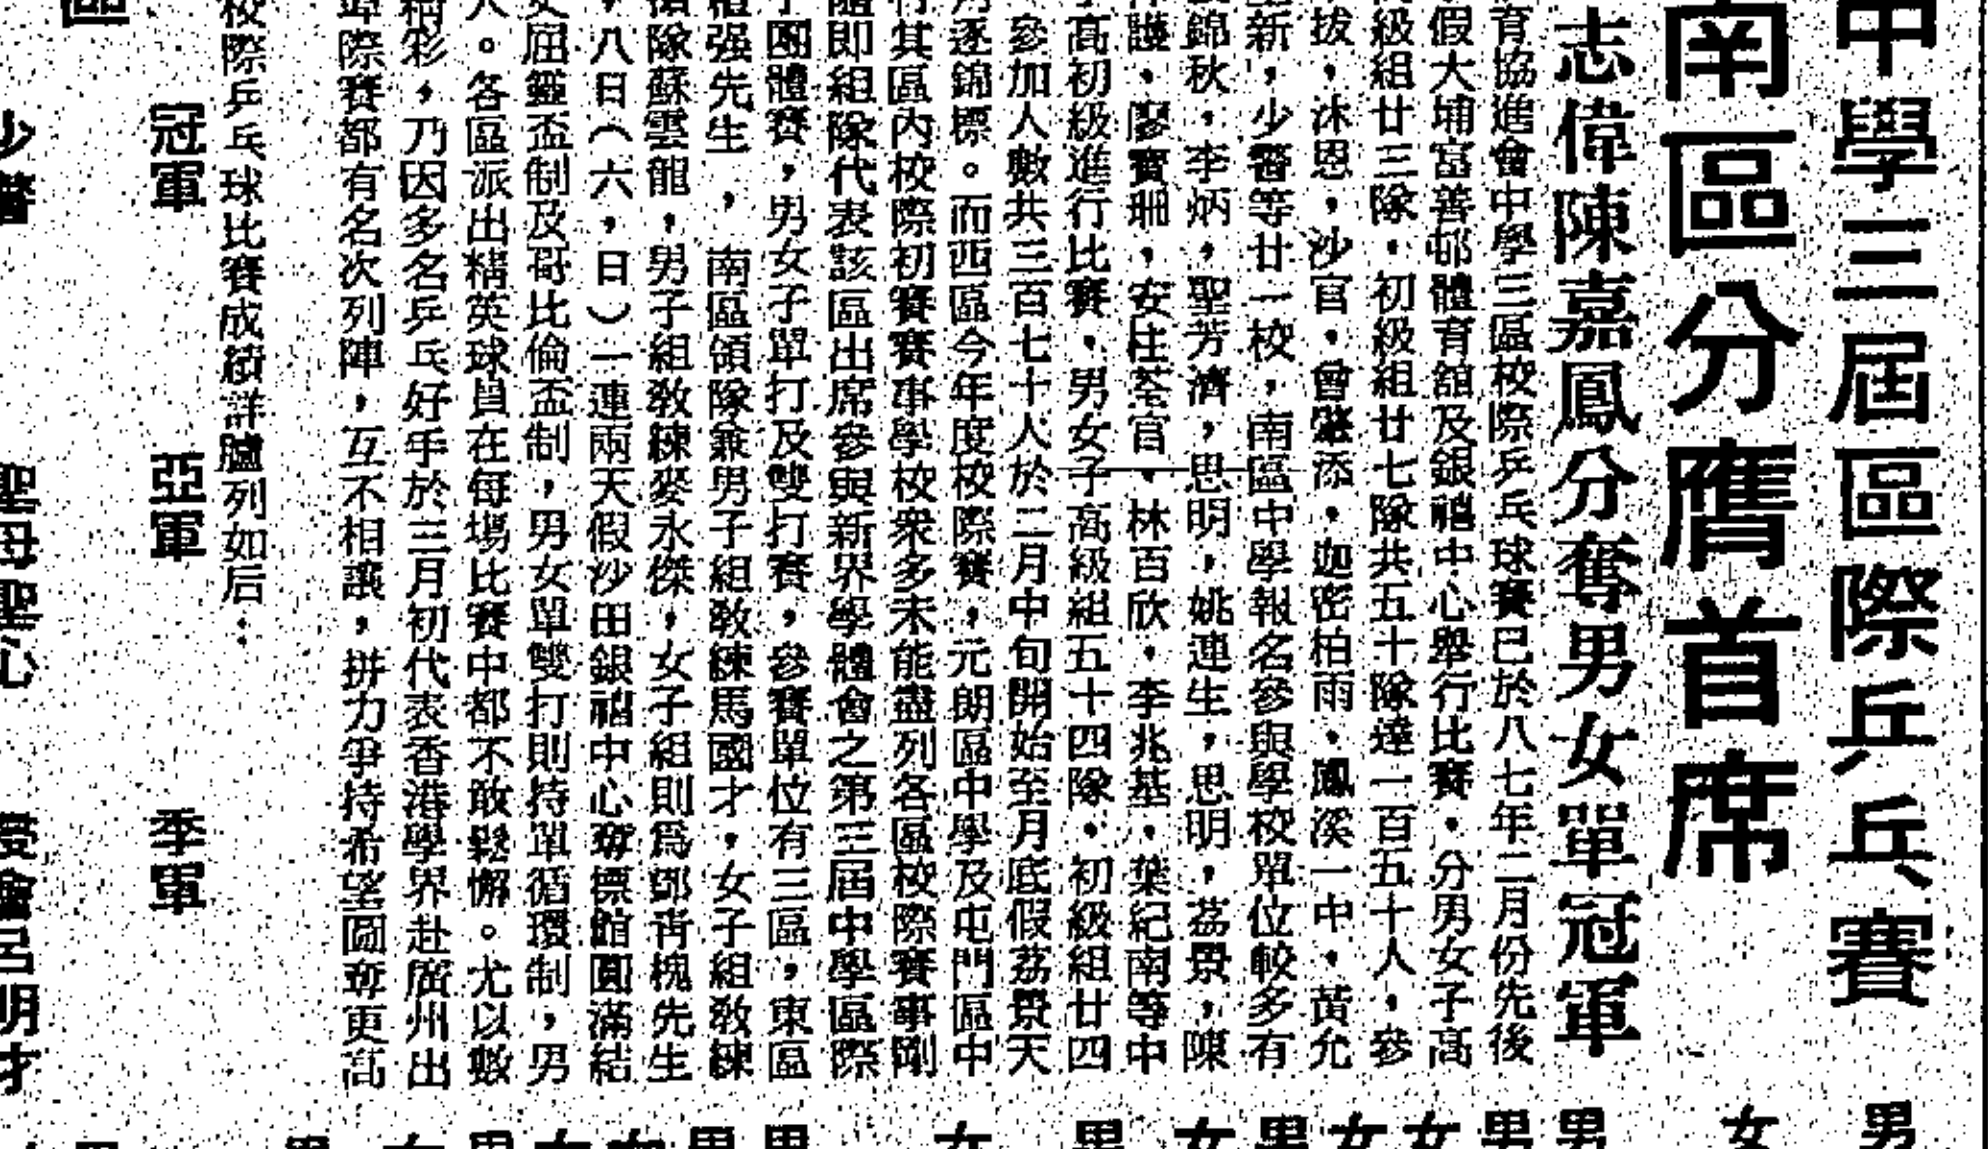 中學三屆區際乒乓賽
南區分膺首席
志偉陳嘉鳳分奪男女單冠軍
育協進會中學三區校際乒乓球賽已於八七年二月份先後
假大埔富善邨體育館及銀禧中心舉行比賽，分男女子高
級組廿三隊，初級組廿七隊共五十隊達一百五十人，參
拔，沐恩，沙官，曾肇添，迦密柏雨，鳳溪一中，黃允
新，少醫等廿一校，南區中學報名參與學校單位較多有
錦秋，李炳，聖芳濟，思明，姚連生，思明，荔景，陳
護，廖寶珊，安柱荃官，林百欣，李兆基，葉紀南等中
高初級進行比賽，男女子高級組五十四隊，初級組廿四
參加人數共三百七十人於二月中旬開始至月底假荔景天
逐錦標。而西區今年度校際賽，元朗區中學及屯門區中
其區內校際初賽賽事學校衆多未能盡列各區校際賽事剛
隨即組隊代表該區出席參與新界學體會之第三屆中學區際
團體賽，男女子單打及雙打賽，參賽單位有三區，東區
強先生，南區領隊兼男子組教練馬國才，女子組教練
隊蘇雲龍，男子組教練麥永傑，女子組則爲鄧靑槐先生
八日（六，日）一連兩天假沙田銀禧中心奪標館圓滿結
盃制及哥比倫盃制，男女單雙打則持單循環制，男
人。各區派出精英球員在每場比賽中都不敢鬆懈。尤以數
彩，乃因多名乒乓好手於三月初代表香港學界赴廣州出
際賽都有名次列陣，互不相讓，拼力爭持希望圖奪更高
校際乒乓球比賽成績詳臚列如后：
冠軍　亞軍　季軍
區
少醫　聖母聖心　呂明才
男 女 男 男 女 女 男 女 男 女 男 男